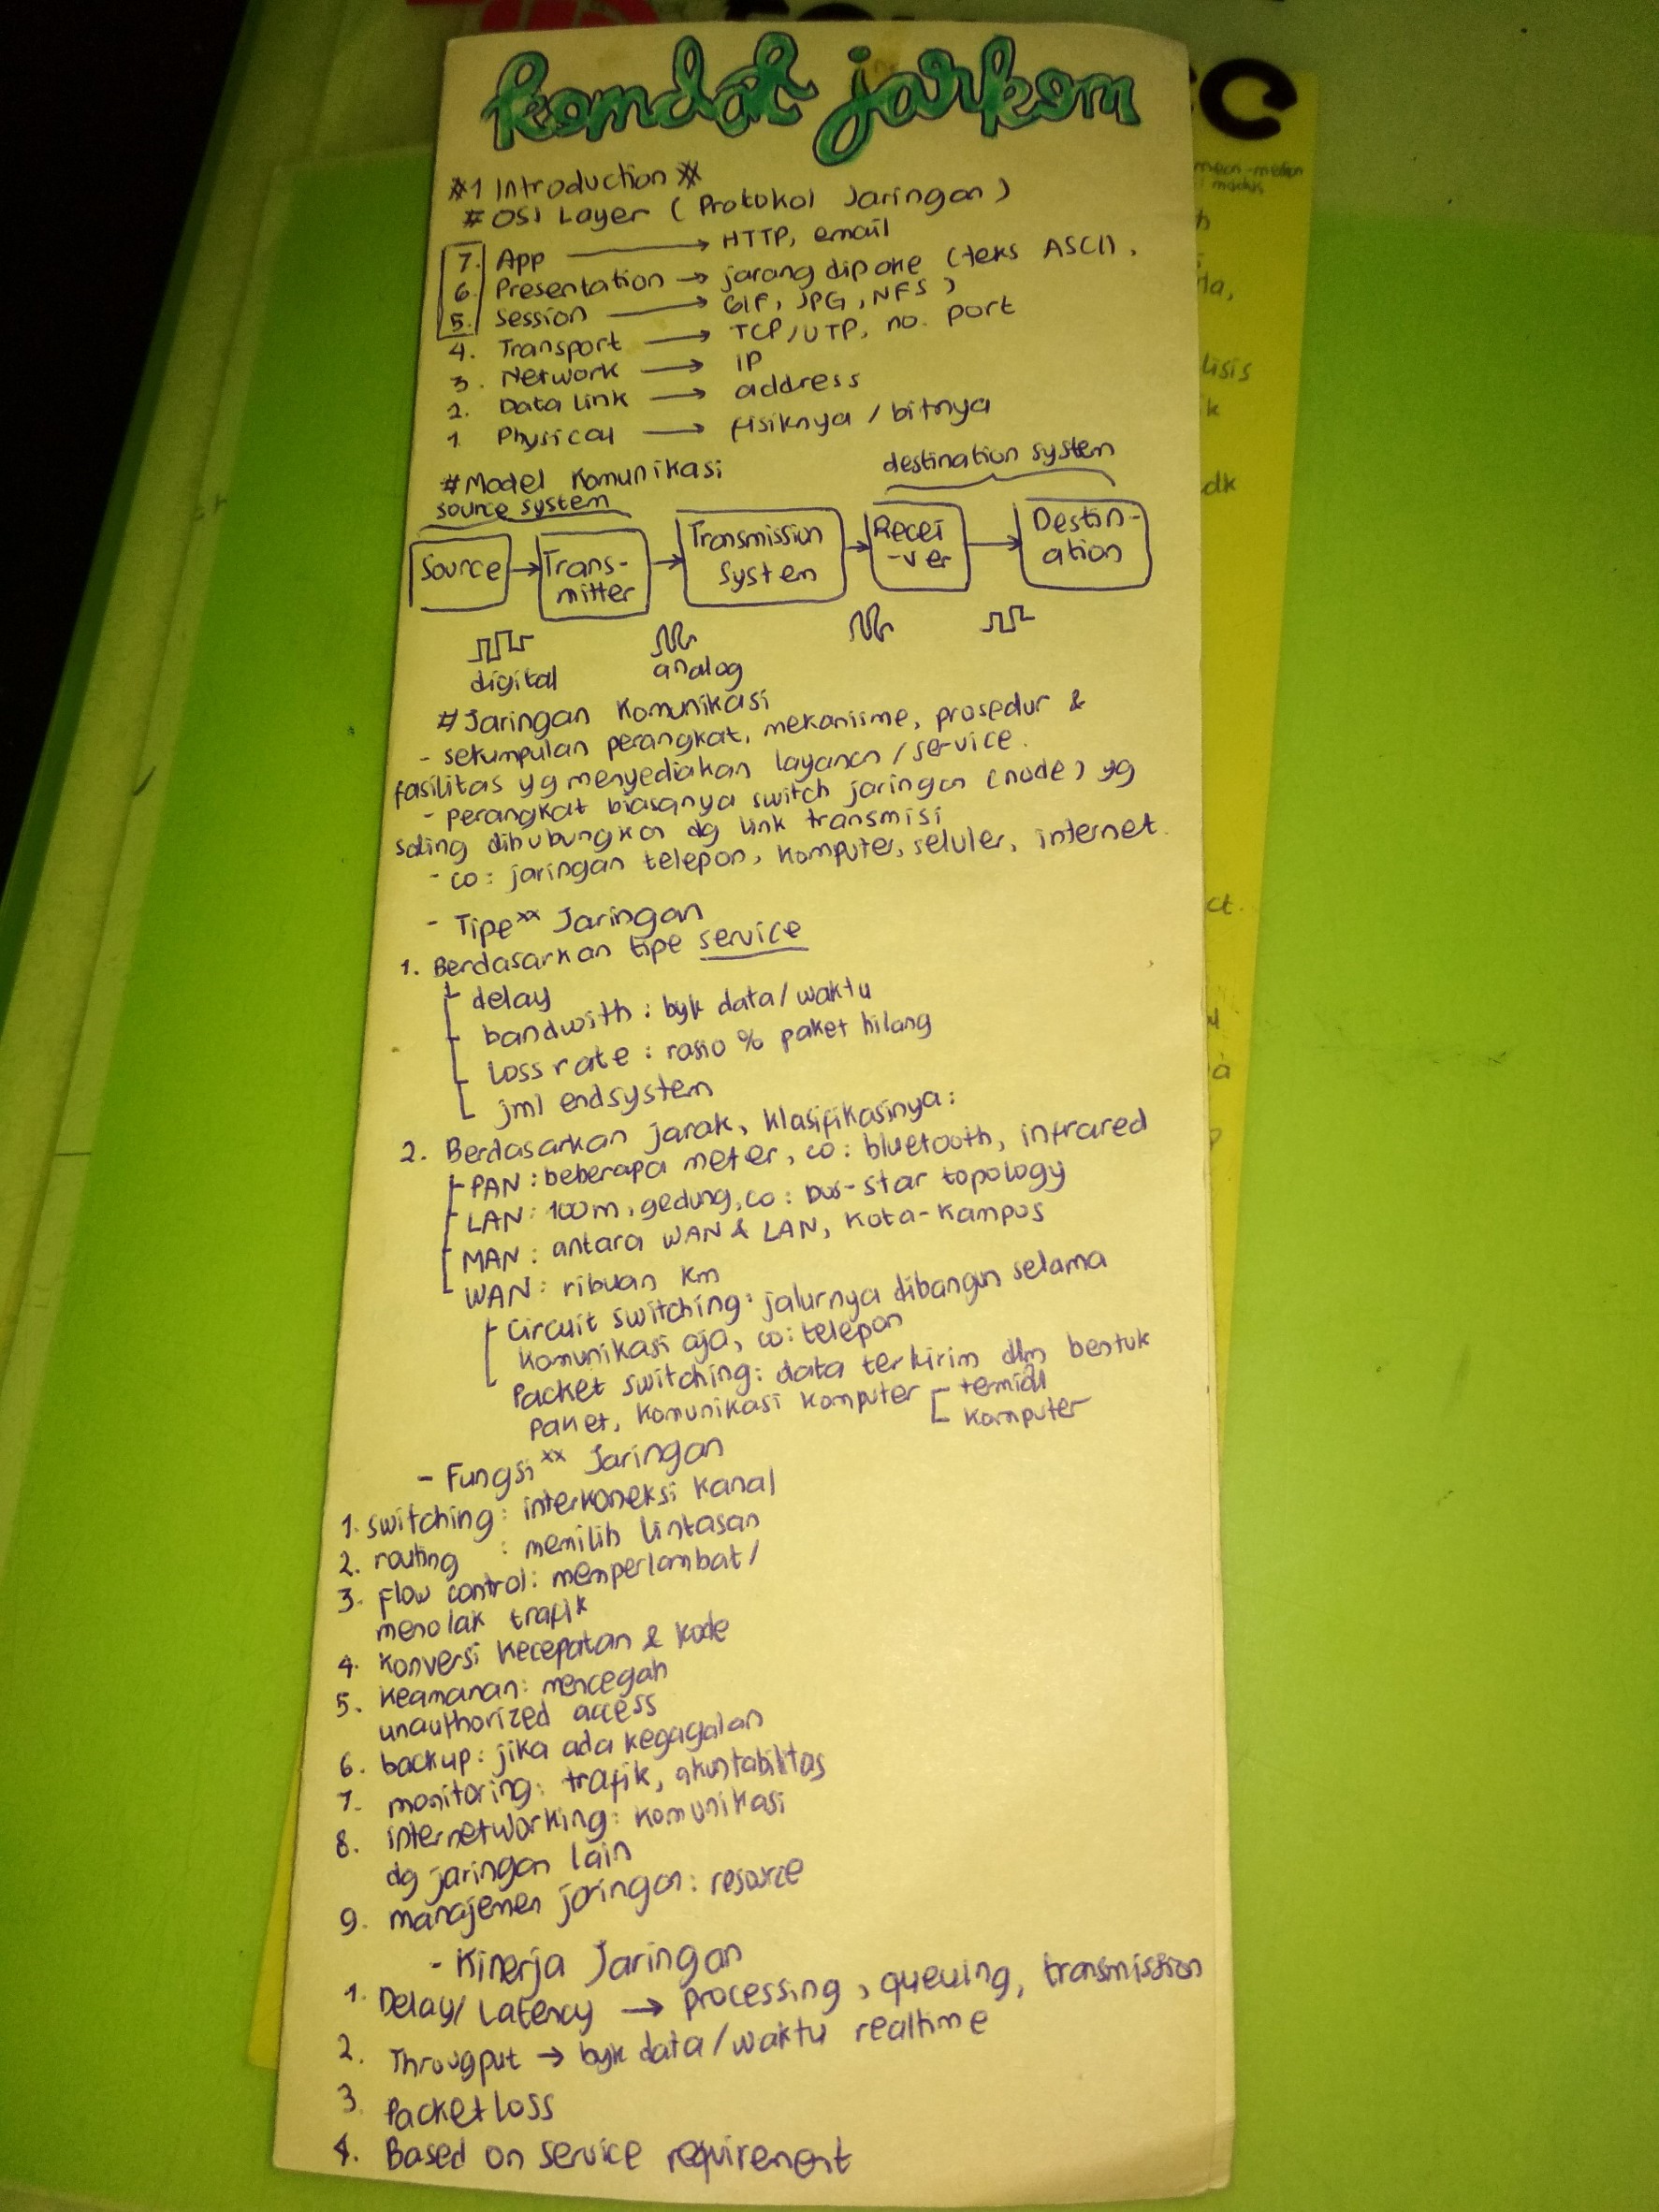 komdat jarkom
*1 Introduction *
# OSI Layer ( Protokol Jaringan )
7. App → HTTP, email
6. Presentation → jarang dipake (teks ASCI),
5. Session → GIF, JPG, NFS )
4. Transport → TCP/UTP, no. port
3. Network → IP
2. Data link → address
1. Physical → fisiknya / bitnya
# Model Komunikasi
source system
destination system
Source → Trans-mitter → Transmission System → Recei-ver → Destin-ation
digital analog
# Jaringan Komunikasi
- sekumpulan perangkat, mekanisme, prosedur &
fasilitas yg menyediakan layanan / service.
- perangkat biasanya switch jaringan (node) yg
saling dihubungkan dg link transmisi
- co: jaringan telepon, komputer, seluler, internet.
- Tipe xx Jaringan
1. Berdasarkan tipe service
delay
bandwith : byk data/waktu
Loss rate : rasio % paket hilang
jml endsystem
2. Berdasarkan jarak, klasifikasinya:
PAN : beberapa meter, co: bluetooth, infrared
LAN : 100m, gedung, co: bus-star topology
MAN : antara WAN & LAN, kota-kampus
WAN : ribuan km
Circuit switching: jalurnya dibangun selama
komunikasi aja, co: telepon
Packet switching: data terkirim dlm bentuk
paket, komunikasi komputer
komputer
- Fungsi xx Jaringan
1. switching : interkoneksi kanal
2. routing : memilih lintasan
3. Flow control: memperlambat/
menolak trafik
4. Konversi kecepatan & kode
5. keamanan: mencegah
unauthorized access
6. backup: jika ada kegagalan
7. monitoring: trafik, akuntabilitas
8. internetworking: komunikasi
dg jaringan lain
9. manajemen jaringan: resource
- Kinerja Jaringan
1. Delay/Latency → processing, queuing, transmission
2. Througput → byk data/waktu realtime
3. Packet loss
4. Based on service requirement
mean-median
modus
lisis
k
dk
ct.